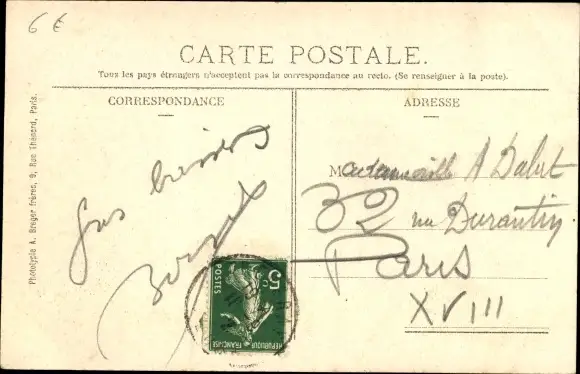 6 €
CARTE POSTALE.
Tous les pays étrangers n'acceptent pas la correspondance au recto. (Se renseigner à la poste).
CORRESPONDANCE
ADRESSE
Photolypie A. Breger frères, 9, Rue Thénard, Paris.
Gros
Mademoiselle A Dalut
32 rue Durantin
Paris
XVIII
5c
POSTES
REPUBLIQUE FRANÇAISE